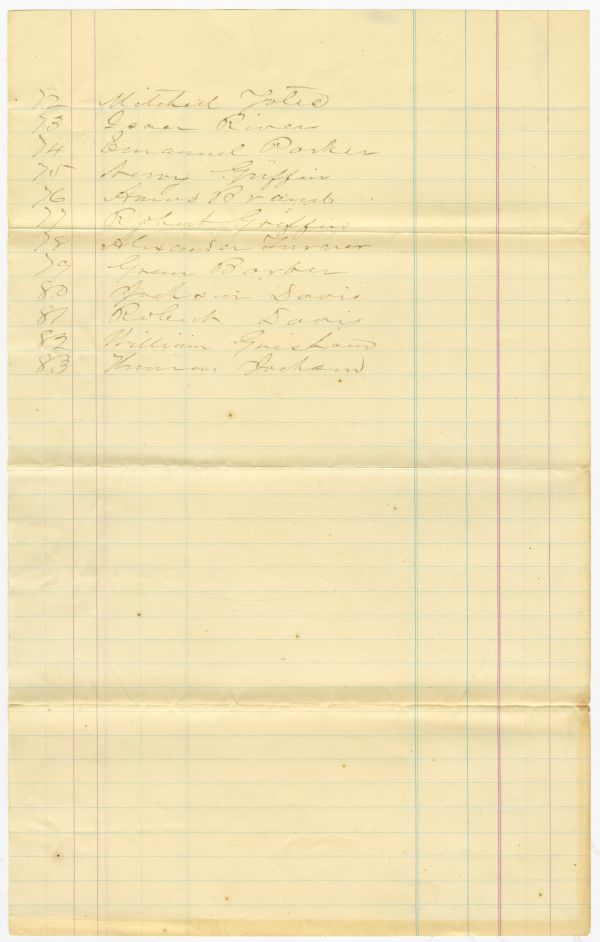 72 Mitchell Yates
73 Isaac Rivers
74 Emanuel Parker
75 Henry Griffin
76 Amus Brand
77 Robert Griffin
78 Alexander Turner
79 Green Barber
80 Jackson Davis
81 Robert Davis
82 William Gresham
83 Jackson